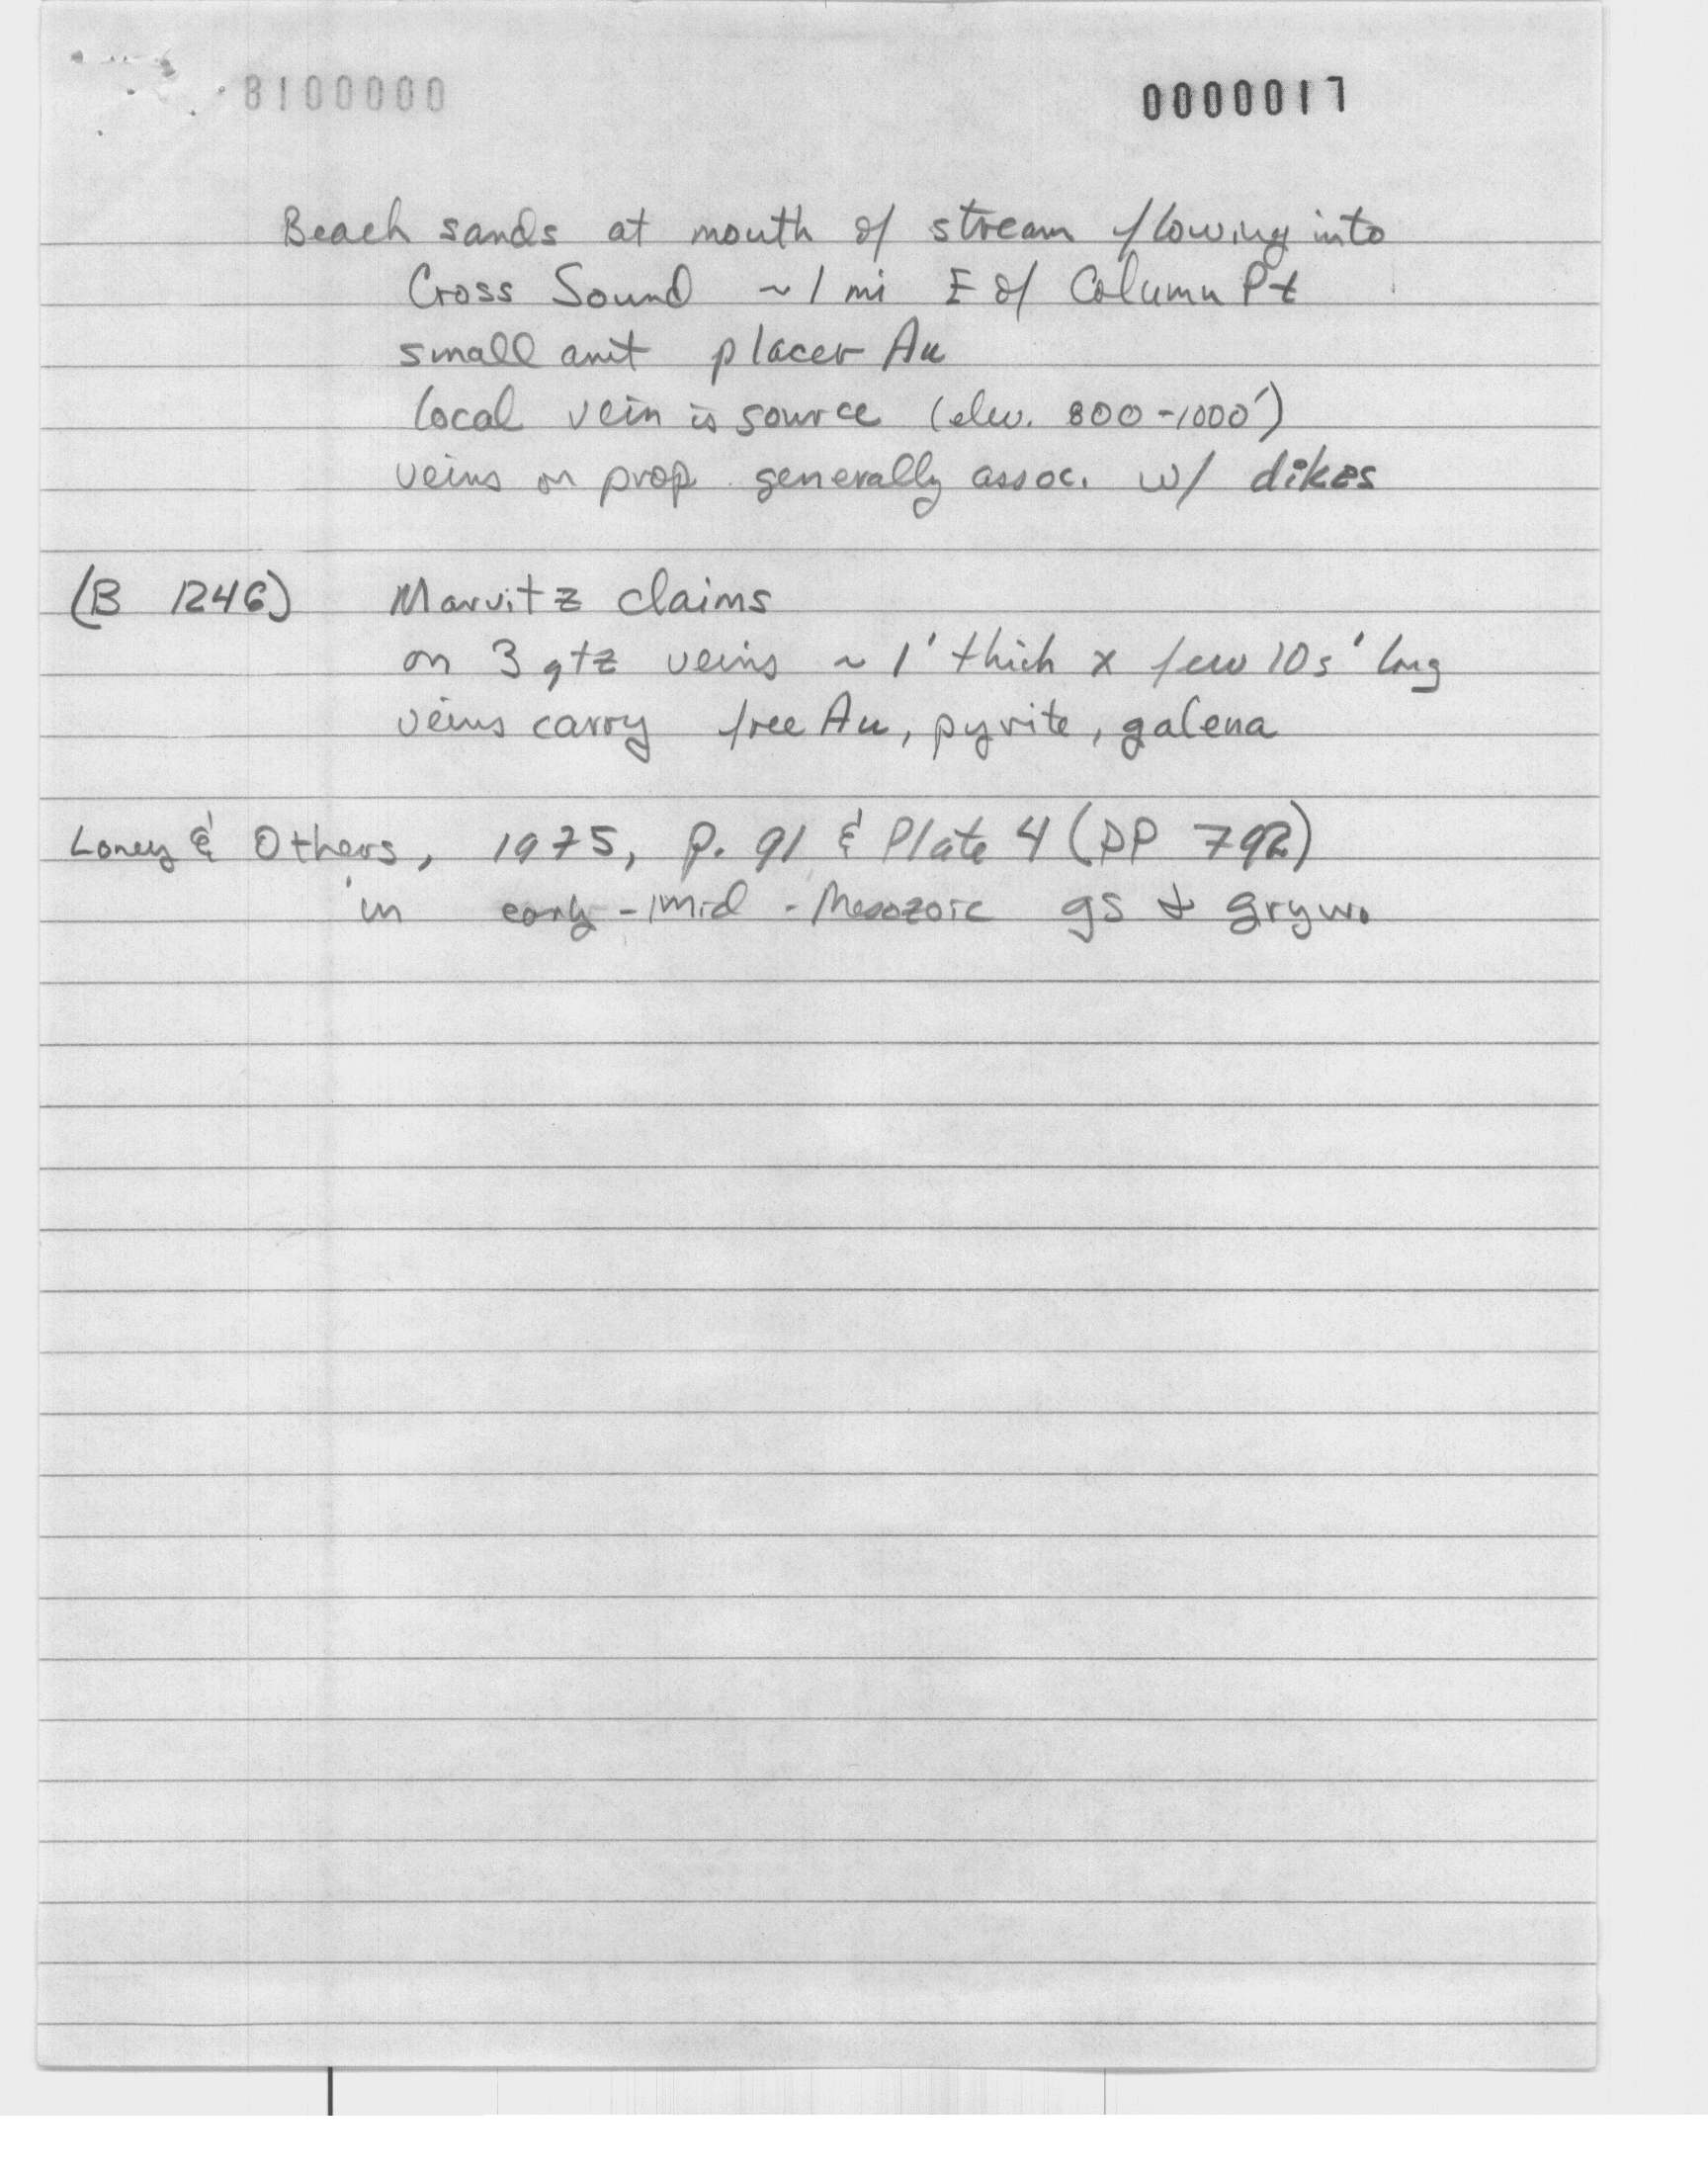 8100000 0000017
Beach sands at mouth of stream flowing into
Cross Sound ~ 1 mi E of Column Pt
small amt placer Au
local vein is source (elev. 800-1000')
veins on prop. generally assoc. w/ dikes
(B 1246) Marvitz claims
on 3 qtz veins ~ 1' thick x few 10s' long
veins carry free Au, pyrite, galena
Loney & Others, 1975, p. 91 & Plate 4 (PP 792)
in early-mid-Mesozoic gs & gryw.